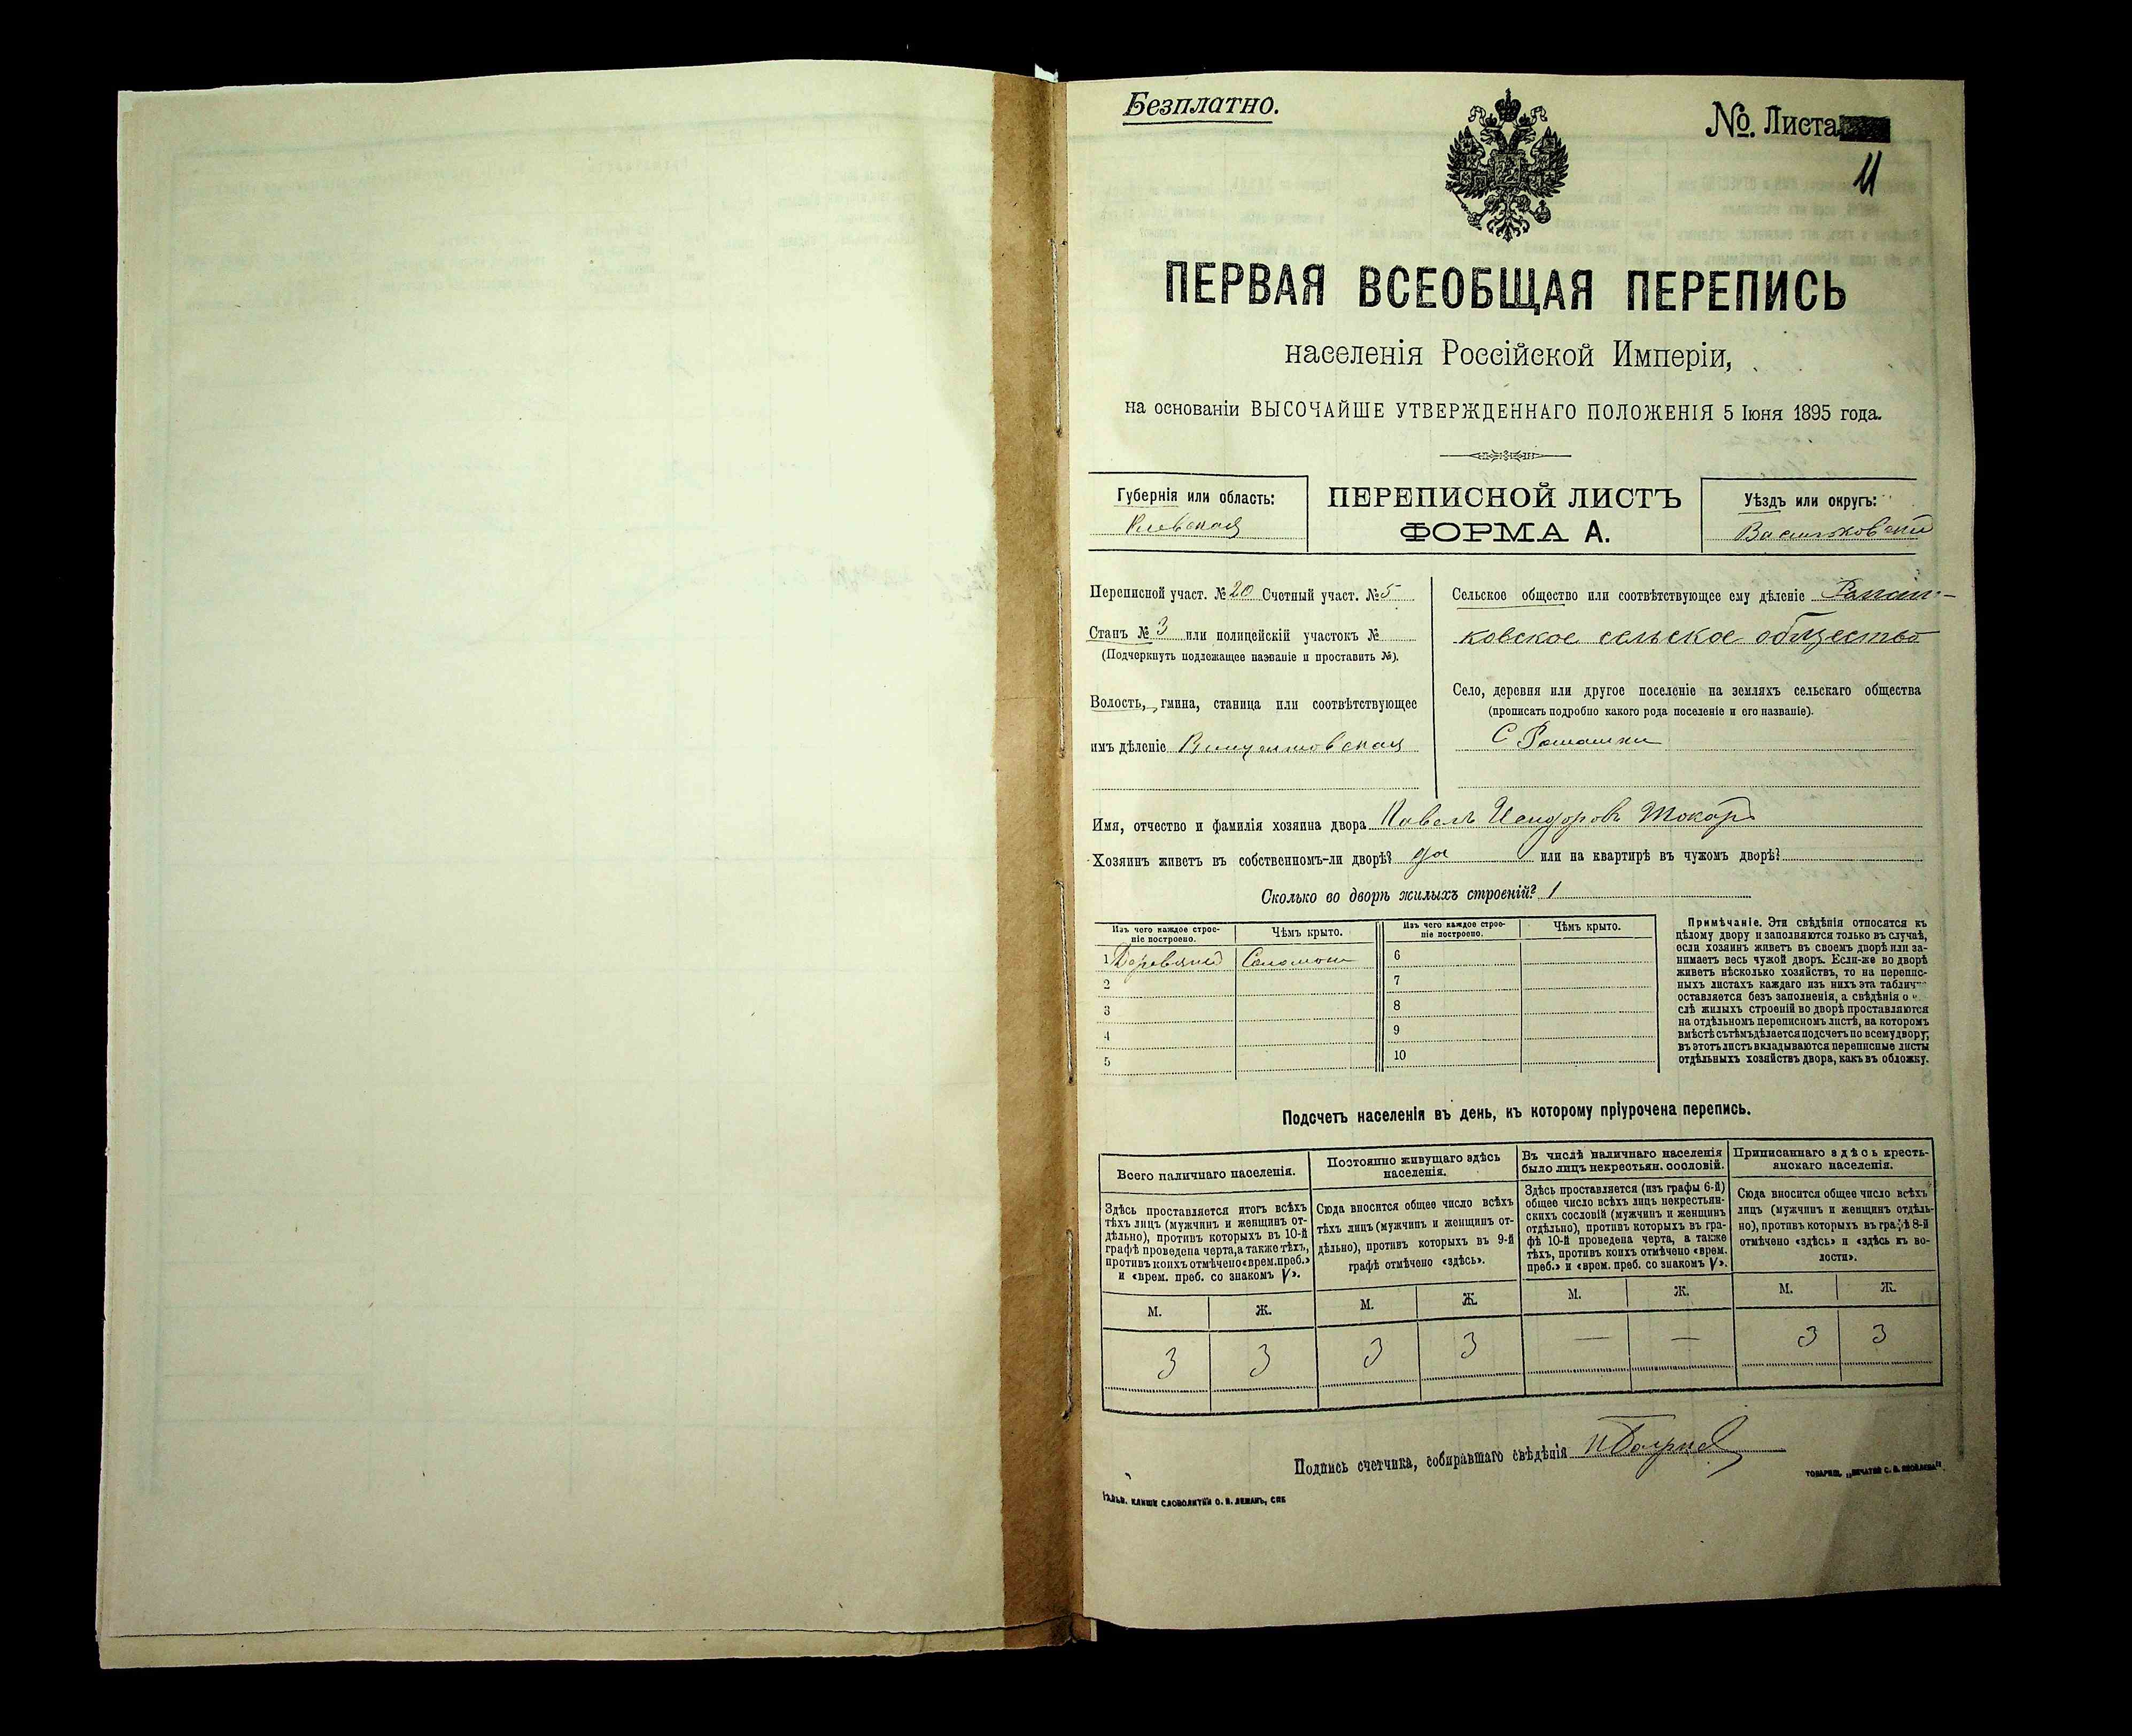 Безплатно.
№. Листа
11
ПЕРВАЯ ВСЕОБЩАЯ ПЕРЕПИСЬ
населенія Россійской Имперіи,
на основаніи ВЫСОЧАЙШЕ УТВЕРЖДЕННАГО ПОЛОЖЕНІЯ 5 Іюня 1895 года.
Губернія или область:
Кіевская
ПЕРЕПИСНОЙ ЛИСТЪ
ФОРМА А.
Уѣздъ или округъ:
Васильковскій
Переписной участ. № 20 Счетный участ. № 5
Станъ № 3 или полицейскій участокъ №
(Подчеркнуть подлежащее названіе и проставить №).
Волость, гмина, станица или соотвѣтствующее
имъ дѣленіе
Сельское общество или соотвѣтствующее ему дѣленіе
ковское сельское общество
Село, деревня или другое поселеніе на земляхъ сельскаго общества
(прописать подробно какого рода поселеніе и его названіе).
С Ромашки
Имя, отчество и фамилія хозяина двора Павелъ Исидоровъ Токарь
Хозяинъ живетъ въ собственномъ-ли дворѣ? да или на квартирѣ въ чужомъ дворѣ?
Сколько во дворѣ жилыхъ строеній? 1
Изъ чего каждое строе-
ніе построено.
Чѣмъ крыто.
Изъ чего каждое строе-
ніе построено.
Чѣмъ крыто.
1 Деревяний Соломою 6
2 7
3 8
4 9
5 10
Примѣчаніе. Эти свѣдѣнія относятся къ
цѣлому двору и заполняются только въ случаѣ,
если хозяинъ живетъ въ своемъ дворѣ или за-
нимаетъ весь чужой дворъ. Если-же во дворѣ
живетъ нѣсколько хозяйствъ, то на перепис-
ныхъ листахъ каждаго изъ нихъ эта таблич
оставляется безъ заполненія, а свѣдѣнія о
слѣ жилыхъ строеній во дворѣ проставляются
на отдѣльномъ переписномъ листѣ, на которомъ
вмѣстѣ съ тѣмъ дѣлается подсчетъ по всему двору;
въ этотъ листъ вкладываются переписные листы
отдѣльныхъ хозяйствъ двора, какъ въ обложку.
Подсчетъ населенія въ день, къ которому пріурочена перепись.
Всего наличнаго населенія.
Здѣсь проставляется итогъ всѣхъ
тѣхъ лицъ (мужчинъ и женщинъ от-
дѣльно), противъ которыхъ въ 10-й
графѣ проведена черта, а также тѣхъ,
противъ коихъ отмѣчено «врем. преб.»
и «врем. преб. со знакомъ V».
Постоянно живущаго здѣсь
населенія.
Сюда вносится общее число всѣхъ
тѣхъ лицъ (мужчинъ и женщинъ от-
дѣльно), противъ которыхъ въ 9-й
графѣ отмѣчено «здѣсь».
Въ числѣ наличнаго населенія
было лицъ некрестьян. сословій.
Здѣсь проставляется (изъ графы 6-й)
общее число всѣхъ лицъ некрестьян-
скихъ сословій (мужчинъ и женщинъ
отдѣльно), противъ которыхъ въ гра-
фѣ 10-й проведена черта, а также
тѣхъ, противъ коихъ отмѣчено «врем.
преб.» и «врем. преб. со знакомъ V».
Приписаннаго здѣсь кресть-
янскаго населенія.
Сюда вносится общее число всѣхъ
лицъ (мужчинъ и женщинъ отдѣль-
но), противъ которыхъ въ графѣ 8-й
отмѣчено «здѣсь» и «здѣсь къ во-
лости».
М. Ж. М. Ж. М. Ж. М. Ж.
3 3 3 3 — — 3 3
Подпись счетчика, собиравшаго свѣдѣнія
Гальв. клише словолитни О. И. Леманъ, СПБ
Товарищ. „Печатня С. П. Яковлева".